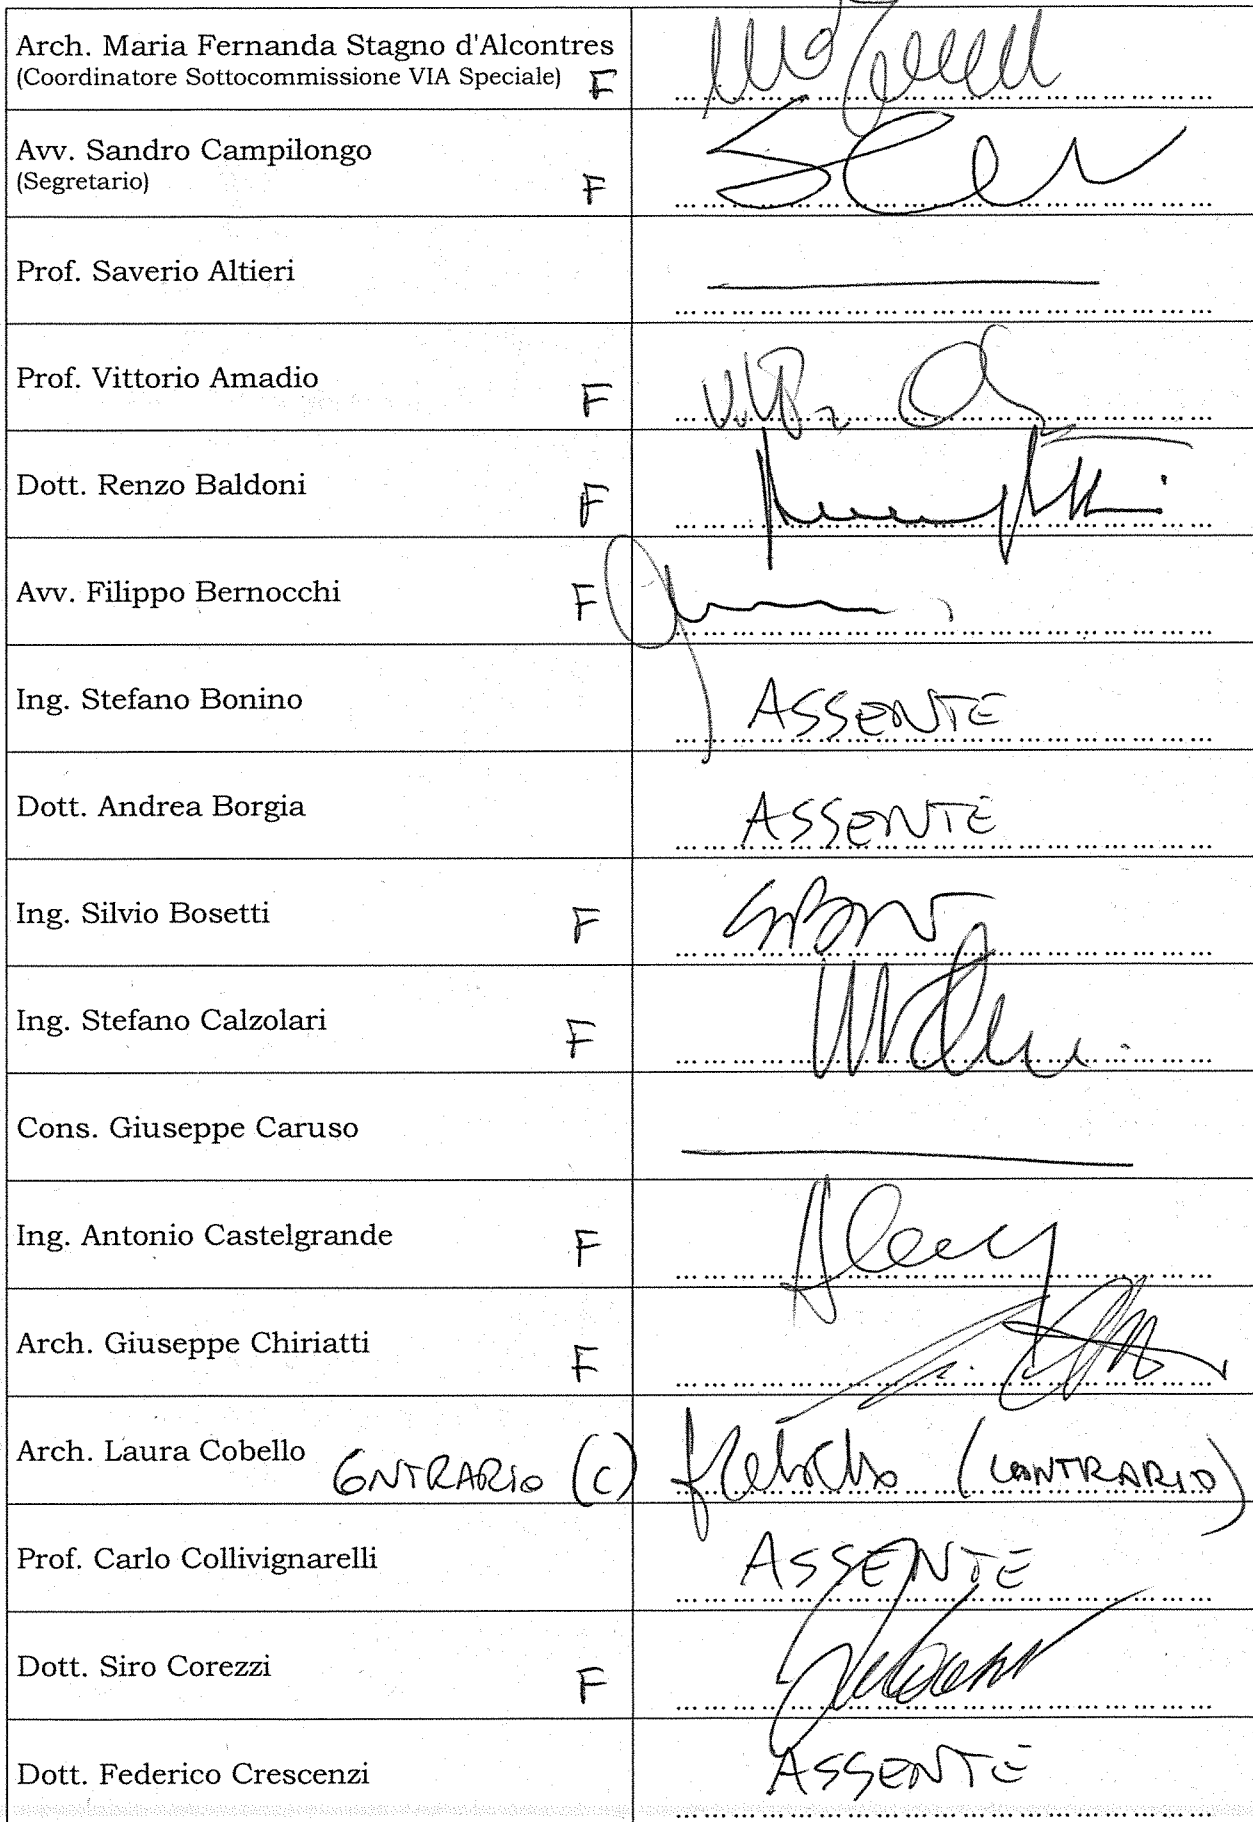 Arch. Maria Fernanda Stagno d'Alcontres
(Coordinatore Sottocommissione VIA Speciale) F
Avv. Sandro Campilongo
(Segretario) F
Prof. Saverio Altieri
Prof. Vittorio Amadio F
Dott. Renzo Baldoni F
Avv. Filippo Bernocchi F
Ing. Stefano Bonino ASSENTE
Dott. Andrea Borgia ASSENTE
Ing. Silvio Bosetti F
Ing. Stefano Calzolari F
Cons. Giuseppe Caruso
Ing. Antonio Castelgrande F
Arch. Giuseppe Chiriatti F
Arch. Laura Cobello CONTRARIO (C) (CONTRARIO)
Prof. Carlo Collivignarelli ASSENTE
Dott. Siro Corezzi F
Dott. Federico Crescenzi ASSENTE